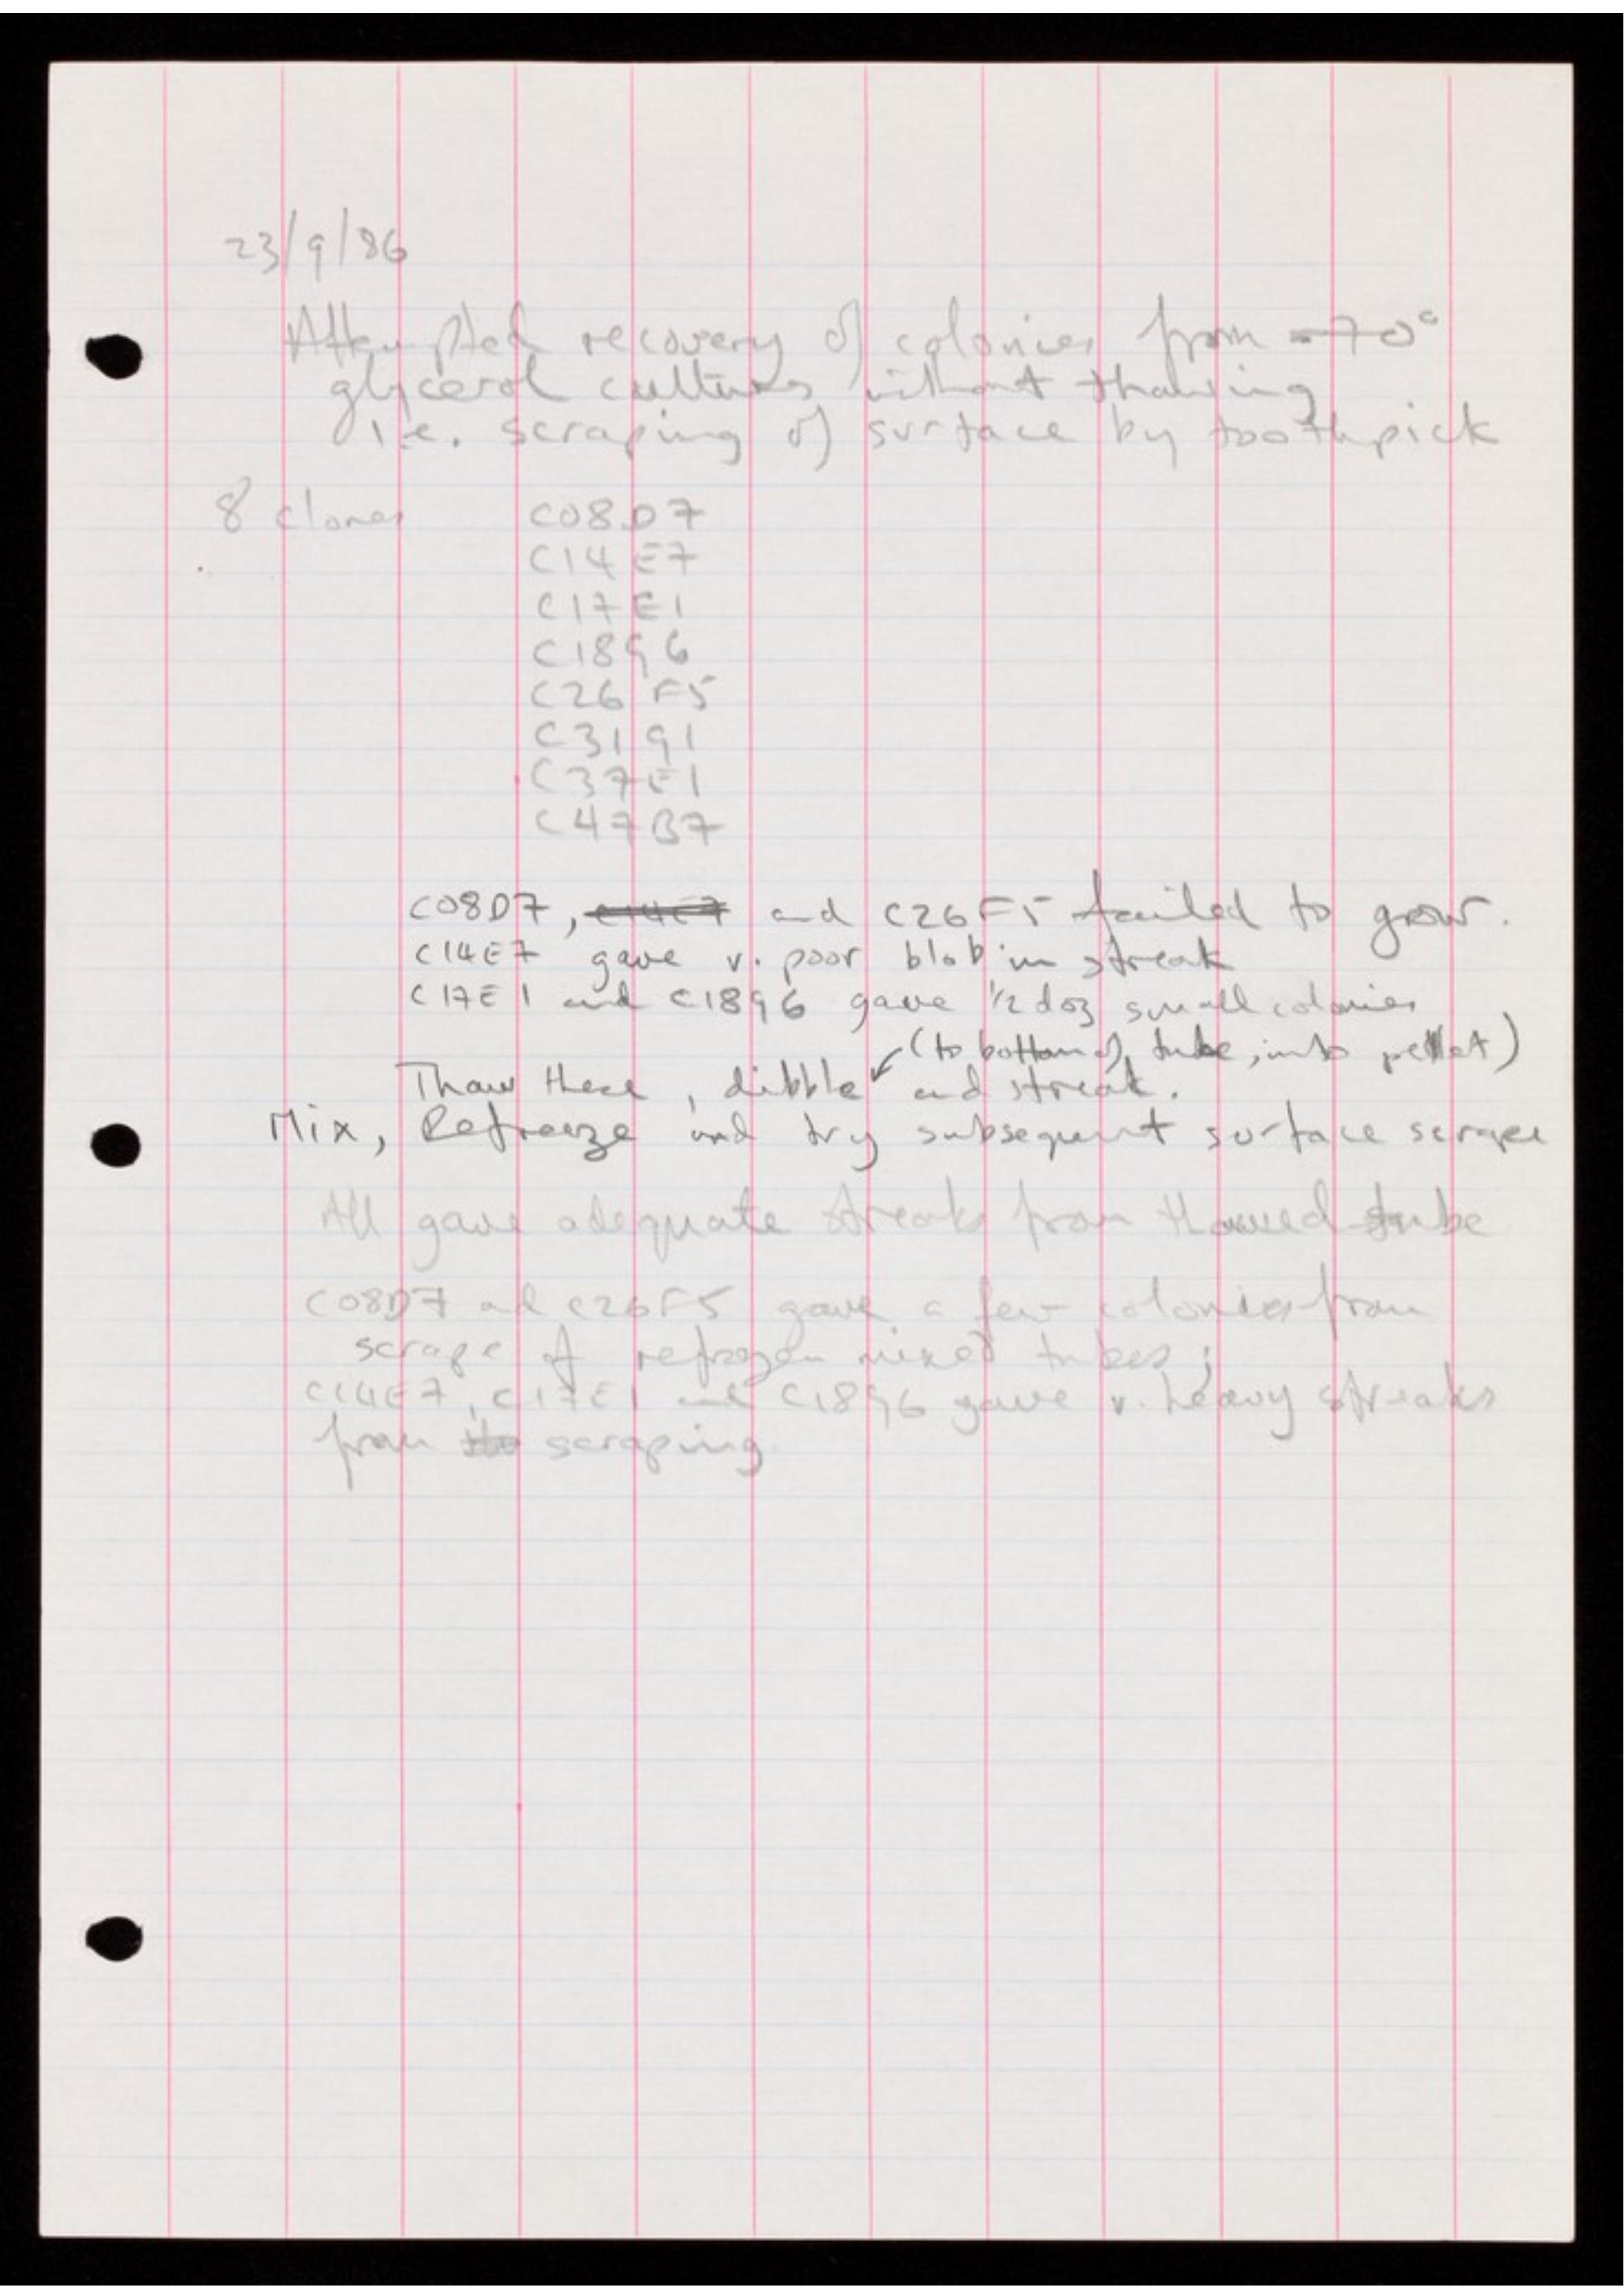 23/9/86
Attempted recovery of colonies from -70°
glycerol cultures without thawing
i.e. scraping of surface by toothpick
8 clones C08D7
C14E7
C17E1
C18G6
C26F5
C31G1
C37E1
C47B7
C08D7, C14E7 and C26F5 failed to grow.
C14E7 gave v. poor blob in streak
C17E1 and C18G6 gave 1/2 doz small colonies
(to bottom of tube, into pellet)
Thaw these, dibble and streak.
Mix, Refreeze and try subsequent surface scrape
All gave adequate streaks from thawed tube
C08D7 and C26F5 gave a few colonies from
scrape of refrozen mixed tubes;
C14E7, C17E1 and C18G6 gave v. heavy streaks
from scraping.